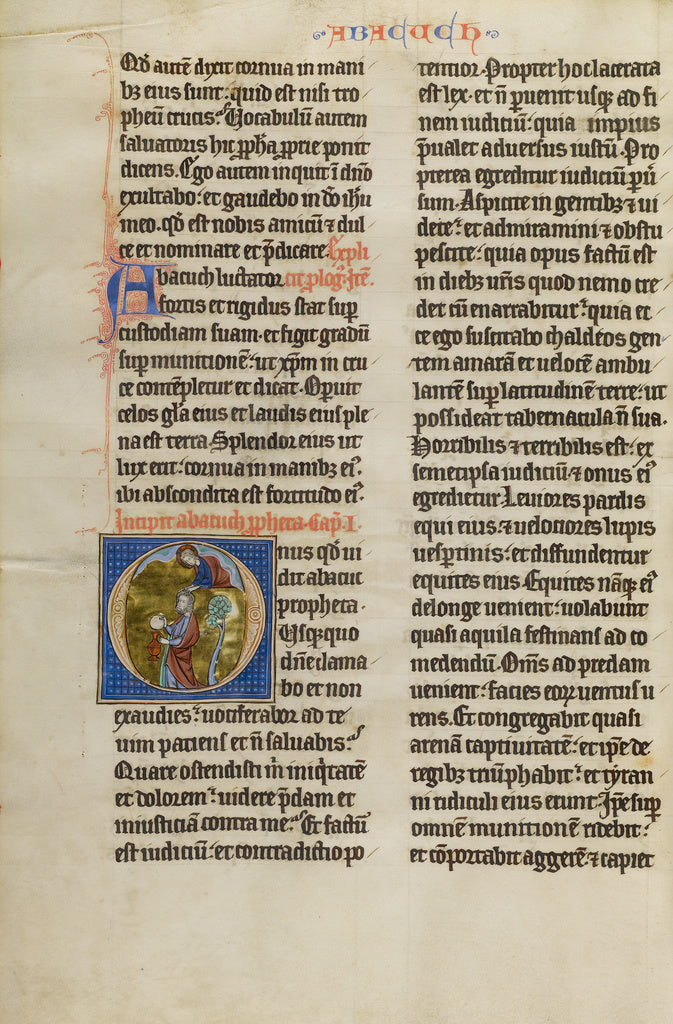 ABACUCH
Qd̄ autē dixit cornua in mani
bꝫ eius sunt: quid est nisi tro
pheū crucis? Vocabulū autem
saluatoris hic ꝓph̄a ꝓprie ponit
dicens. Ego autem inquit ī dn̄o
exultabo: et gaudebo in dō ihū
meo. qd̄ est nobis amicū ⁊ dul
ce et nominare et p̄dicare. Expli
Abacuch luctator cit ꝓlog̾. Itē.
fortis et rigidus stat suꝑ
custodiam suam. et figit gradū
suꝑ munitionē: ut xp̄m in cru
ce contēpletur et dicat. Oꝑuit
celos gl̄a eius et laudis eius ple
na est terra. Splendor eius ut
lux erit: cornua in manibꝫ ei̾.
ibi abscondita est fortitudo ei̾.
Incipit abacuch ꝓpheta. Cap̄. I.
Onus qd̄ ui
dit abacuc
propheta.
Usqꝫ quo
dn̄e clama
bo et non
exaudies: uociferabor ad te
uim patiens et n̄ saluabis?
Quare ostendisti m̄ iniq̇tatē
et dolorem: uidere p̄dam et
iniusticiā contra me? Et factū
est iudiciū: et contradictio po
tentior. Propter hoc lacerata
est lex. et n̄ ꝑuenit usqꝫ ad fi
nem iudiciū: quia impius
p̄ualet aduersus iustū. Pro
pterea egreditur iudiciū ꝑū
sum. Aspicite in gentibꝫ ⁊ ui
dete: et admiramini ⁊ obstu
pescite: quia opus factū est
in diebꝫ ur̄is quod nemo cre
det cū enarrabitur: quia ec
ce ego suscitabo chaldeos gen
tem amarā et uelocē ambu
lantē suꝑ latitudinē terre: ut
possideat tabernacula n̄ sua.
Horribilis ⁊ terribilis est: ex
semetipsa iudiciū ⁊ onus ei̾
egredietur. Leuiores pardis
equi eius. ⁊ uelociores lupis
uesꝑtinis: et diffundentur
equites eius. Equites nāqꝫ ei̾
de longe uenient: uolabunt
quasi aquila festinans ad co
medendū. Om̄s ad predam
uenient: facies eoꝝ uentus u
rens. Et congregabit quasi
arenā captiuitatē: et ip̄e de
regibꝫ triūphabit: et tyran
ni ridiculi eius erunt. Ip̄e suꝑ
omnē munitionē ridebit:
et cōportabit aggerē. ⁊ capiet